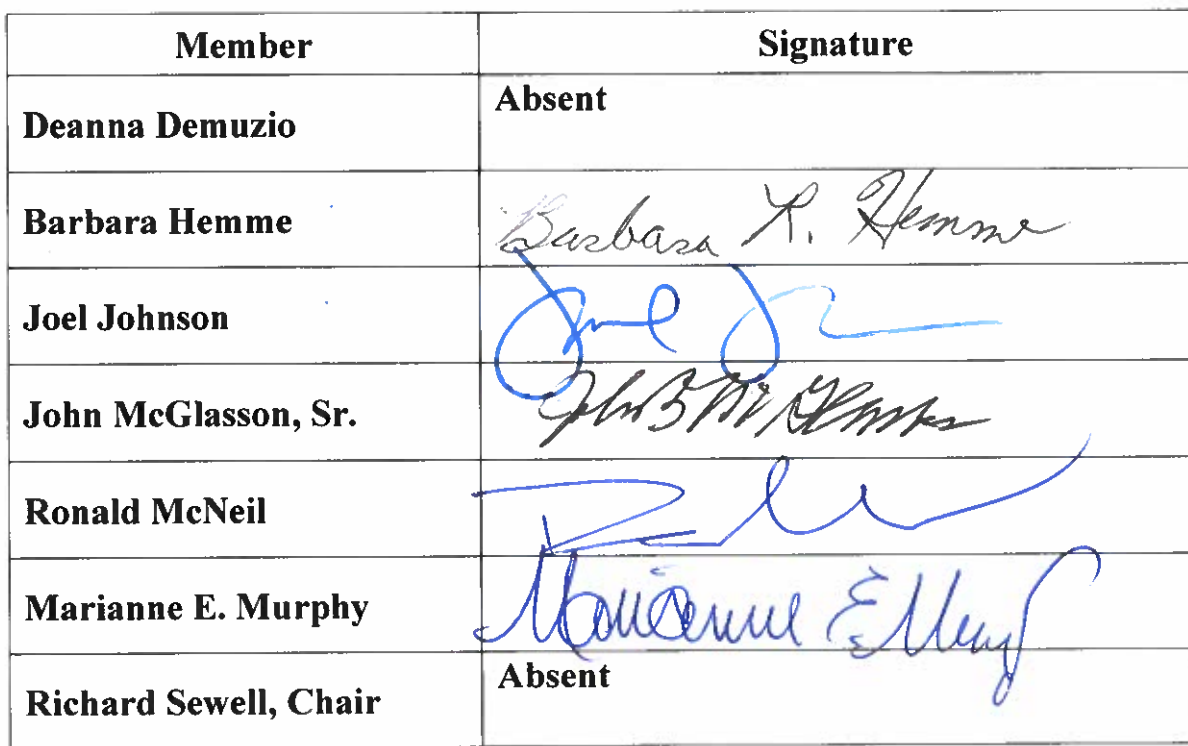 Member Signature
Deanna Demuzio Absent
Barbara Hemme Barbara R. Hemme
Joel Johnson
John McGlasson, Sr. John B McGlasson
Ronald McNeil
Marianne E. Murphy Marianne E Murphy
Richard Sewell, Chair Absent